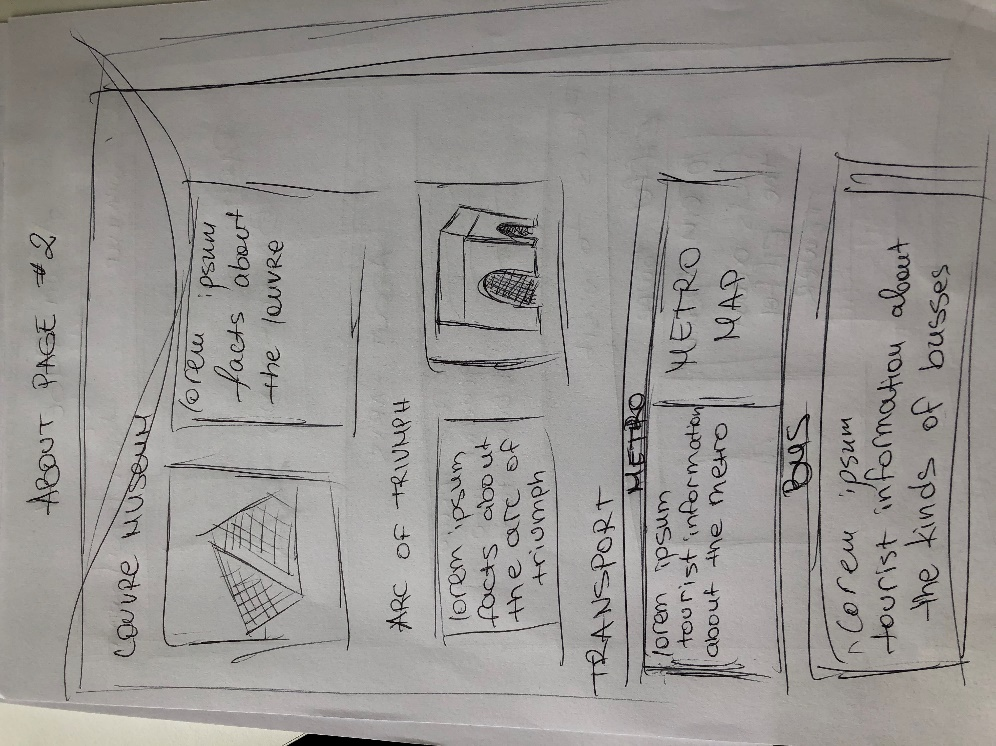 ABOUT PAGE #2
LOUVRE MUSEUM
lorem ipsum
facts about
the louvre
ARC OF TRIUMPH
lorem ipsum
facts about
the arc of
triumph
TRANSPORT
METRO
lorem ipsum
tourist information
about the metro
METRO
MAP
BUS
Lorem ipsum
tourist information about
the kinds of busses